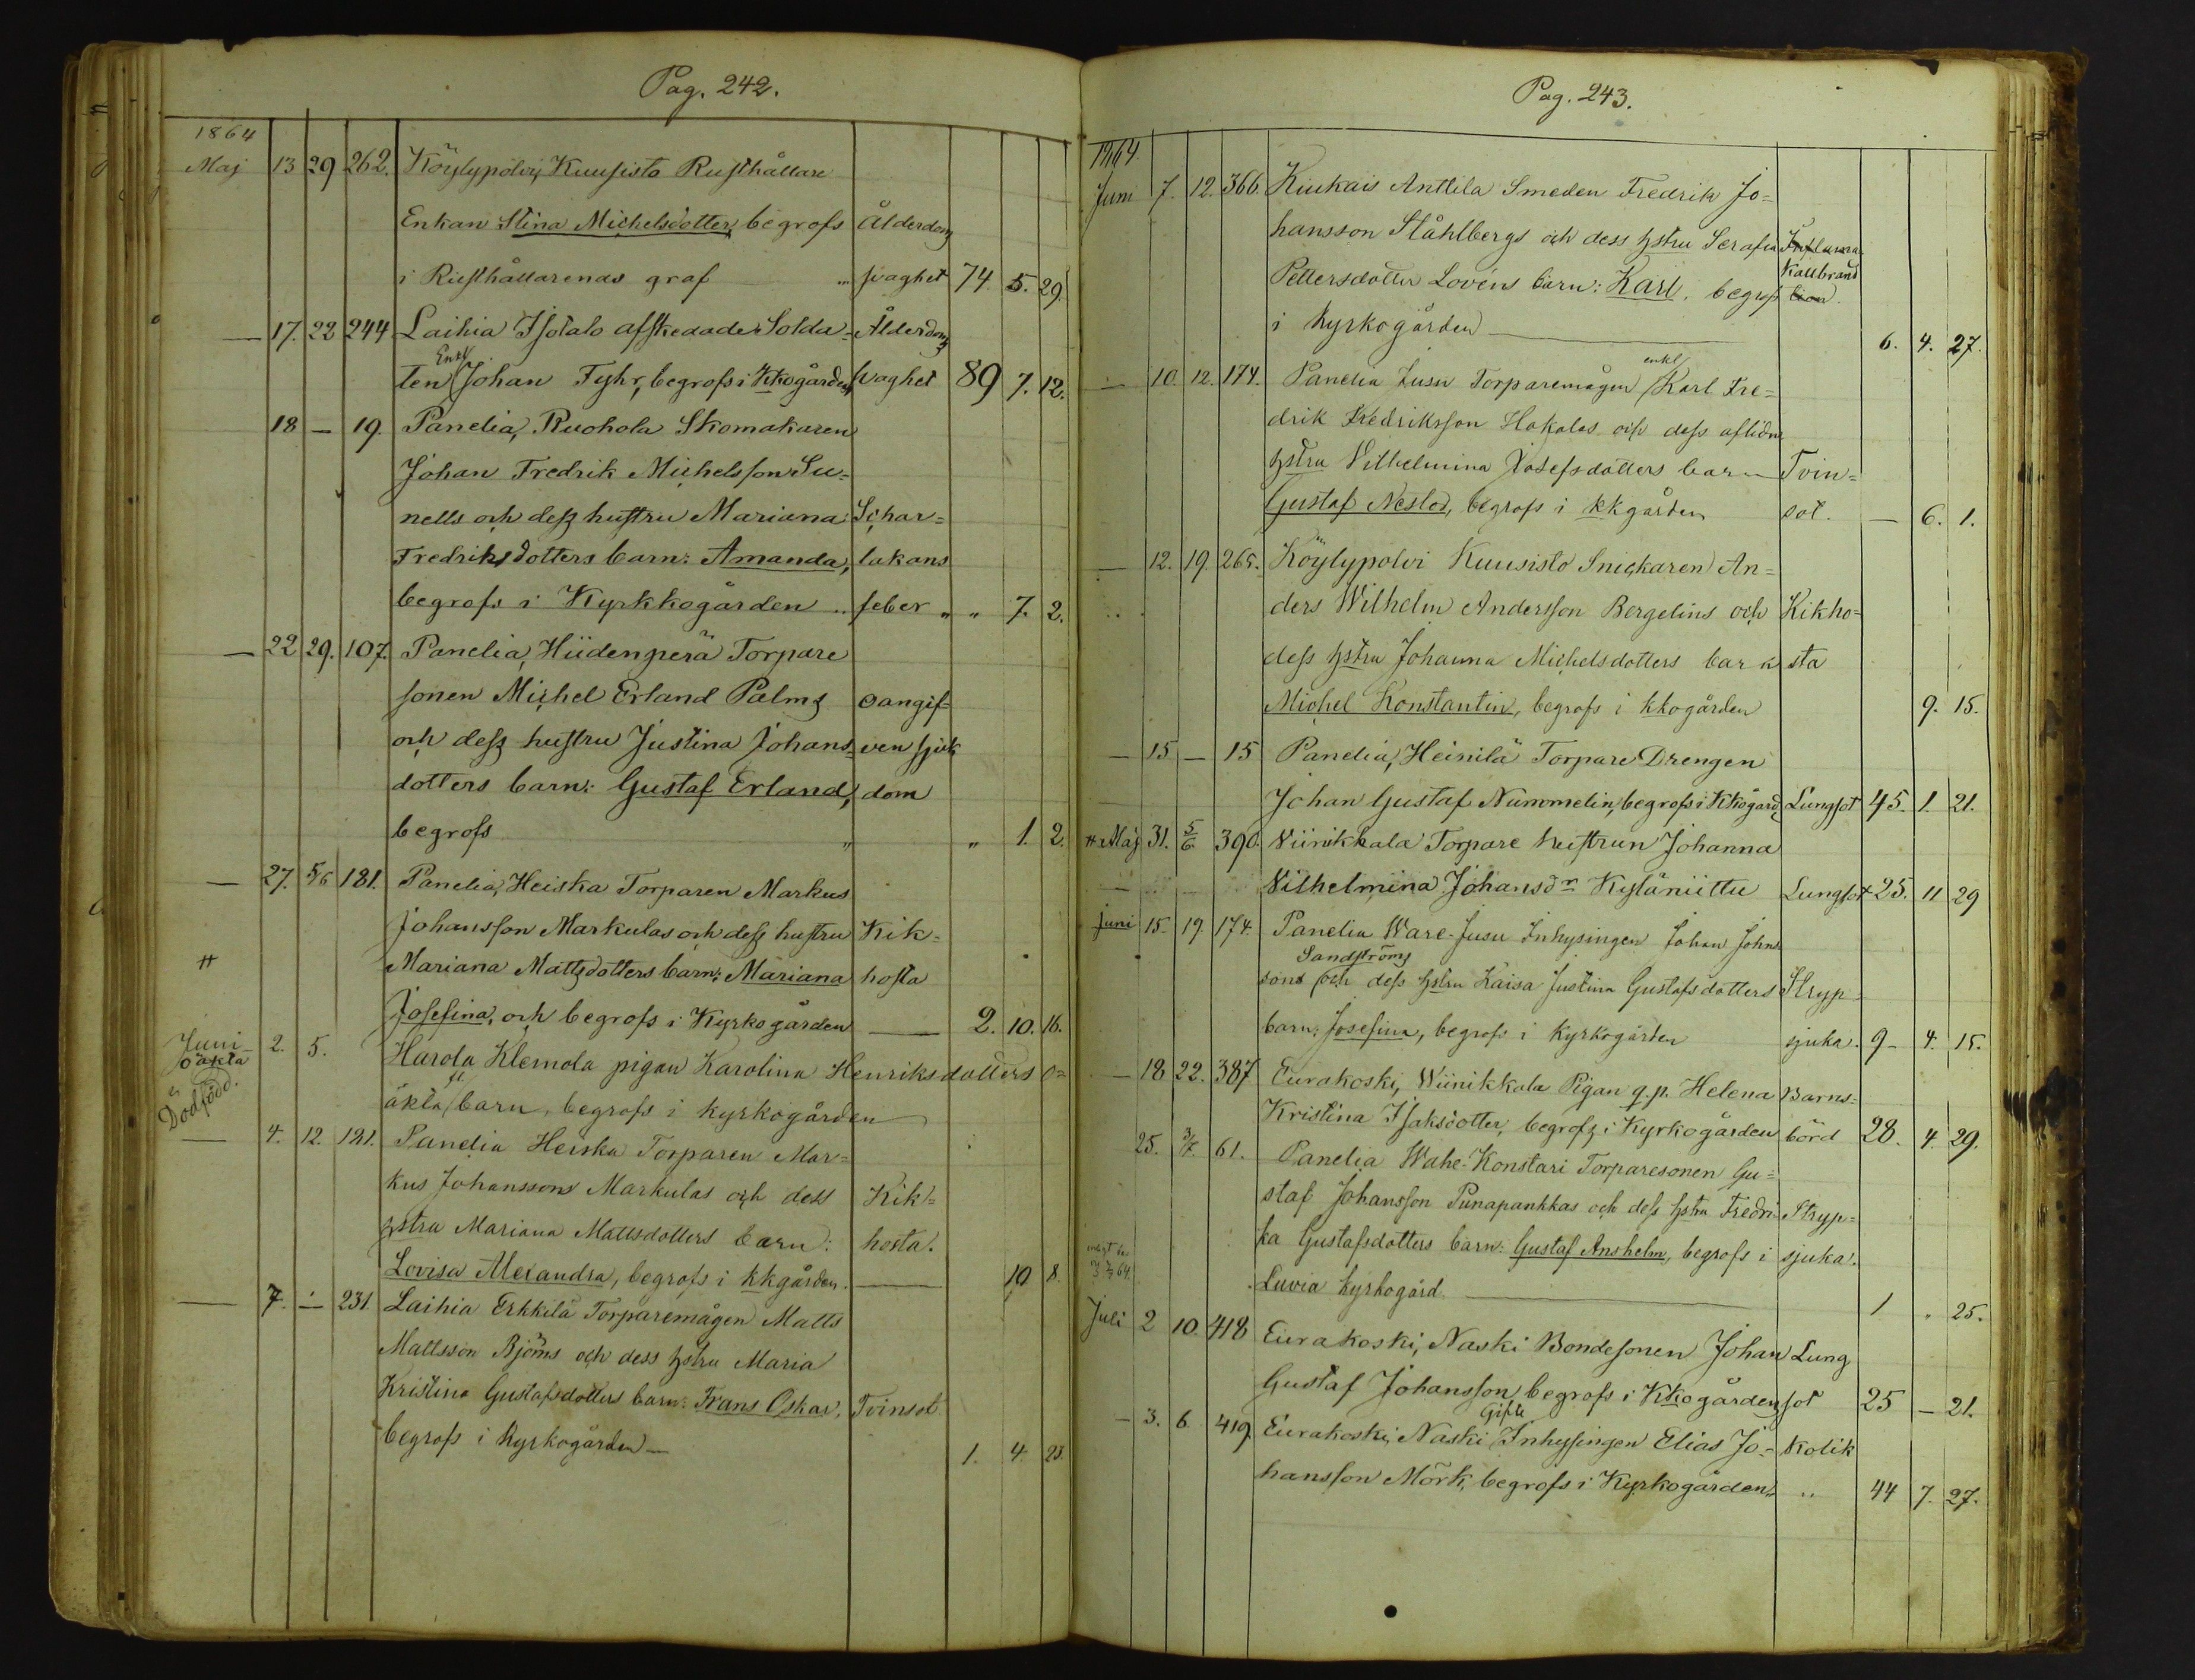 Pag. 242.
1864
Maj 13 29 262. Köylypolvi, Kuusisto Rusthållare
Enkan Stina Michelsdotter, begrofs Ålderdoms
i Rusthållarenas graf svaghet 74. 5. 29.
— 17. 22 244 Laihia Isotalo afskedade Solda- Ålderdoms
Enkl.
ten Johan Fyhr, begrofs i Kkogården svaghet 89 7. 12.
18 — 19. Panelia, Ruohola Skomakaren
Johan Fredrik Michelsson Su=
nells och dess hustru Mariana Schar=
Fredriksdotters barn: Amanda, lakans
begrofs i Kyrkkogården feber " " 7. 2.
— 22 29. 107 Panelia, Hiidenperä Torpare
sonen Michel Erland Palms oangif=
och dess hustru Justina Johans ven sjuk
dotters barn: Gustaf Erland, dom
begrofs " " 1. 2.
— 27. 5/6 181. Panelia, Heiska Torparen Markus
Johansson Markulas och dess hustru Kik=
# Mariana Mattsdotters barn: Mariana hosta
Josefina, och begrofs i Kyrkogården — 2. 10. 16.
Juni 2. 5. Harola Klemola pigan Karolina Henriksdotters o=
oäkta
Dödfödd. äkta barn, begrofs i kyrkogården
— 4. 12. 181. Panelia Heiska Torparen Mar=
kus Johanssons Markulas och dess Kik=
hstru Mariana Mattsdotters barn: hosta.
Lovisa Alexandra, begrofs i kkgården. — 10 8.
— 7. — 231. Laihia Erkkilä Torparemågen Matts
Mattsson Björns och dess hstru Maria
Kristina Gustafsdotters barn: Frans Oskar, Tvinsot
begrofs i Kyrkogården — 1. 4. 23.
Pag. 243.
1864.
Juni 7. 12. 366. Kiukais Anttila Smeden Fredrik Jo=
hansson Ståhlbergs och dess hstru Serafia Inflamma
Kallbrand
Pettersdotter Lovéns barn: Karl, begrofs tion.
i kyrkogården — 6. 4. 27.
enkl
— 10. 12. 174. Panelia Jusu Torparemågen Karl Fre=
drik Fredriksson Hakalas och dess aflidna
hstru Vilhelmina Josefsdotters barn Tvin=
Gustaf Nestor, begrofs i kkgården sot. — 6. 1.
— 12. 19. 265. Köylypolvi Kuusisto Snickaren An=
ders Wilhelm Andersson Bergelins och Kikho=
dess hstru Johanna Michelsdotters barn sta
Michel Konstantin, begrofs i kkogården 9. 15.
— 15 — 15 Panelia, Heinilä Torpare Drengen
Johan Gustaf Nummelin, begrofs i Kkogård Lungsot 45. 1. 21.
# Maj 31. 5/6 390. Viinikkala Torpare hustrun Johanna
Vilhelmina Johansdr Kyläniittu Lungsot 25. 11 29
Juni 15. 19. 174. Panelia Ware-Jusu Inhysingen Johan Johns
Sandströms
sons och dess hstru Kaisa Justina Gustafsdotters Stryp=
barn: Josefina, begrofs i Kyrkogården sjuka. 9 - 4. 15.
— 18 22. 387 Eurakoski, Wiinikkala Pigan q.p. Helena Barns=
Kristina Isaksdotter, begrofs i Kyrkogården börd 28. 4. 29.
25. 3/7. 61. Panelia Wahe-Konstari Torparesonen Gu=
staf Johansson Punapankkas och dess hstru Fredri= Stryp=
ka Gustafsdotters barn: Gustaf Anshelm, begrofs i sjuka.
Luvia kyrkogård. — 1 " 25.
Juli 2 10. 418 Eurakoski, Naski Bondesonen Johan Lung
Gustaf Johansson, begrofs i Kkogården sot 25 — 21.
Gifte
— 3. 6. 419 Eurakoski, Naski Inhysingen Elias Jo= Kolik
hansson Mörk, begrofs i Kyrkogården " 44 7. 27.